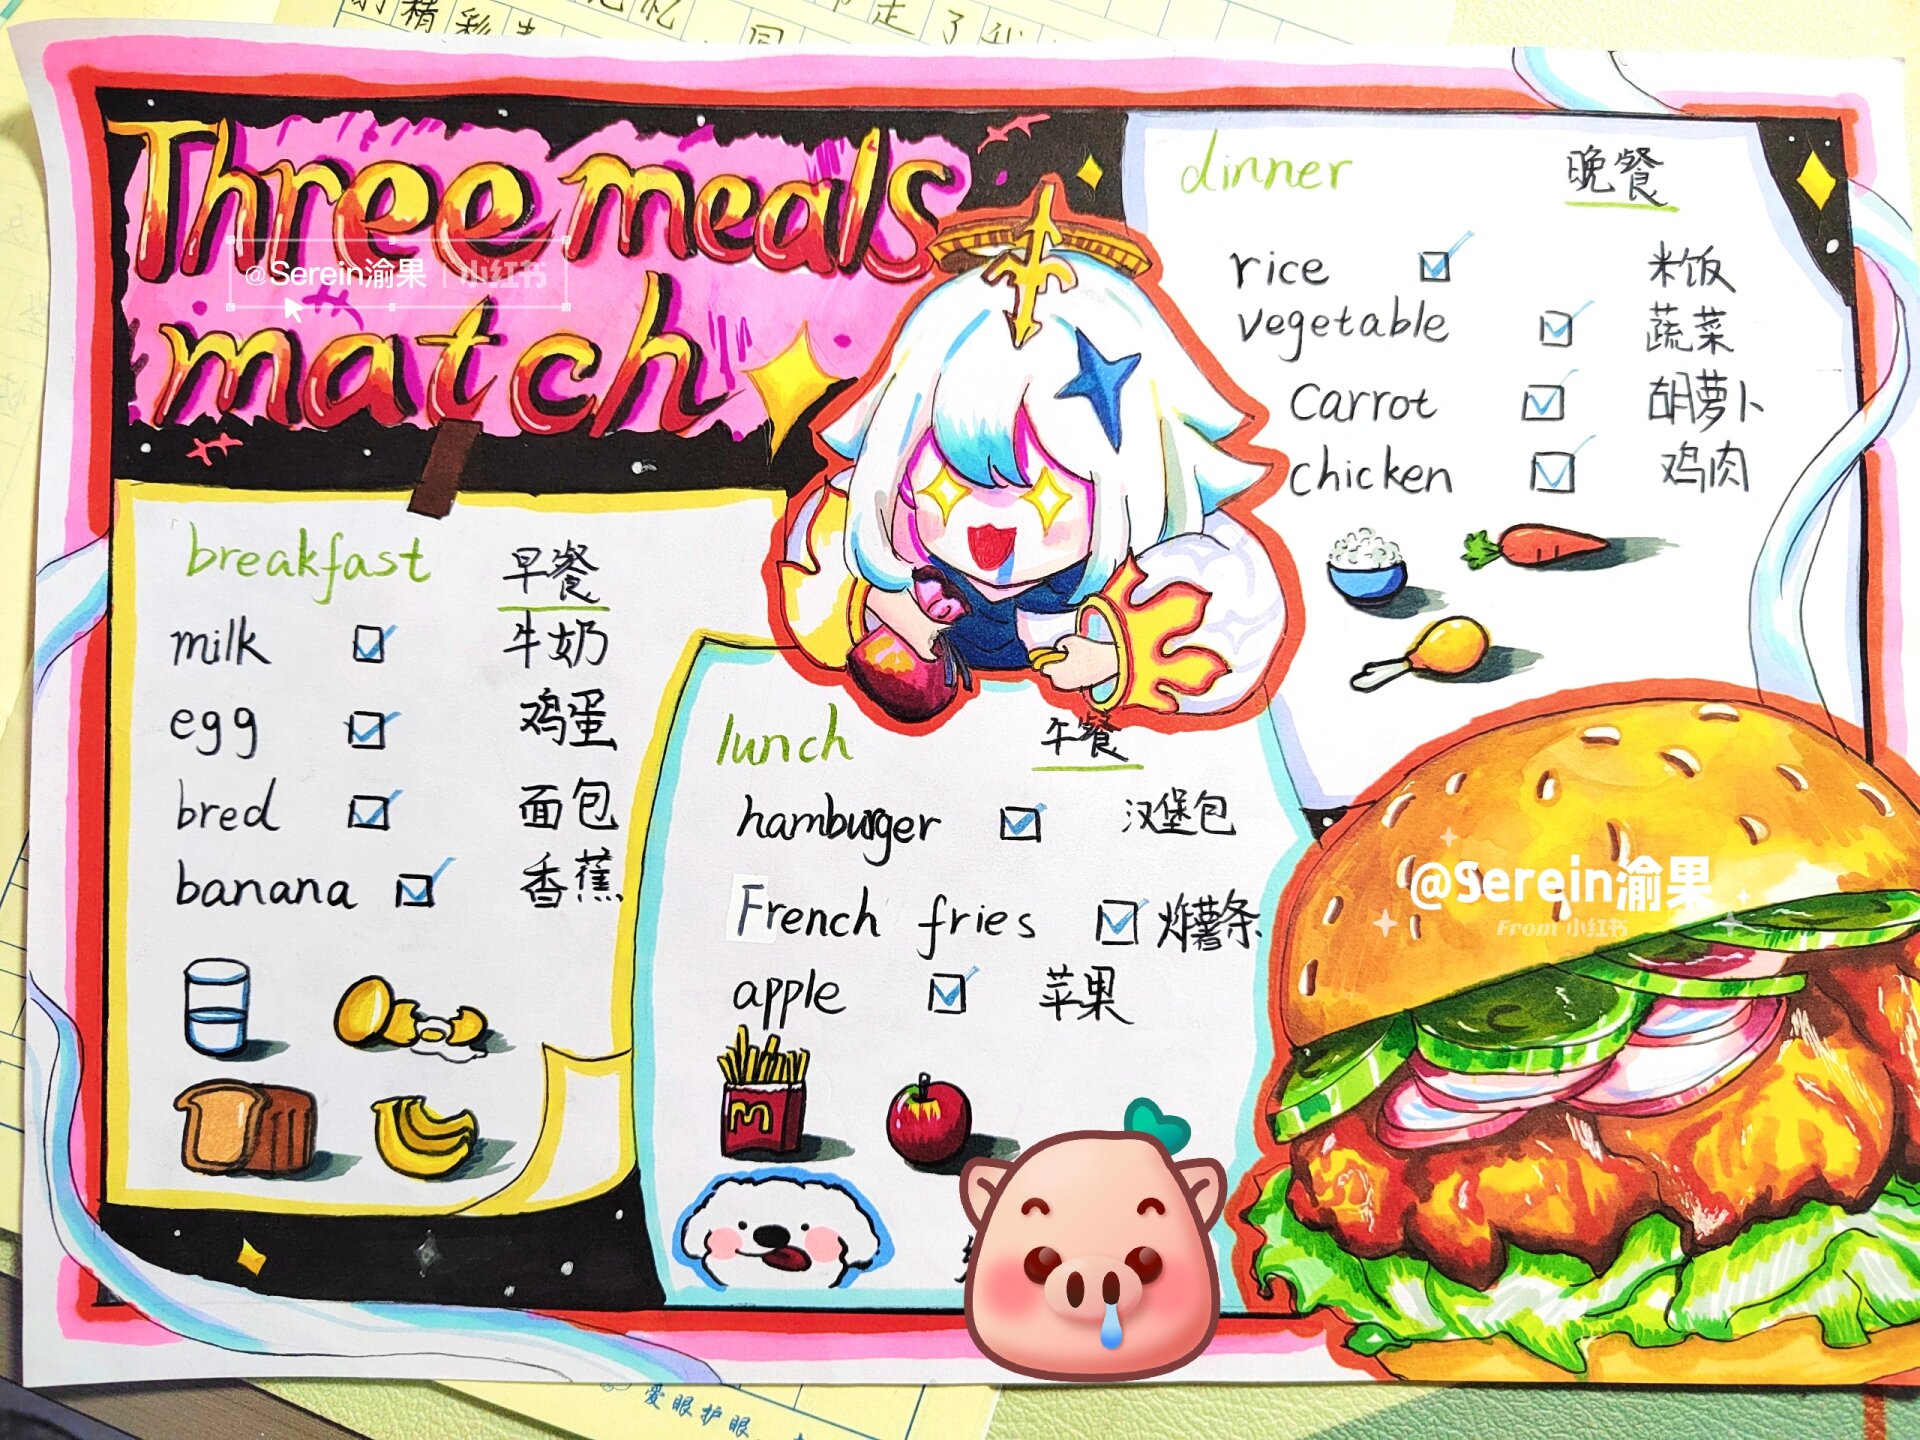 Three meals
match
@Serein渝果 | 小红书
breakfast 早餐
milk 牛奶
egg 鸡蛋
bred 面包
banana 香蕉
lunch 午餐
hamburger 汉堡包
French fries 炸薯条
apple 苹果
M
dinner 晚餐
rice 米饭
vegetable 蔬菜
carrot 胡萝卜
chicken 鸡肉
@Serein渝果
From 小红书
精彩
走了我
爱眼护眼